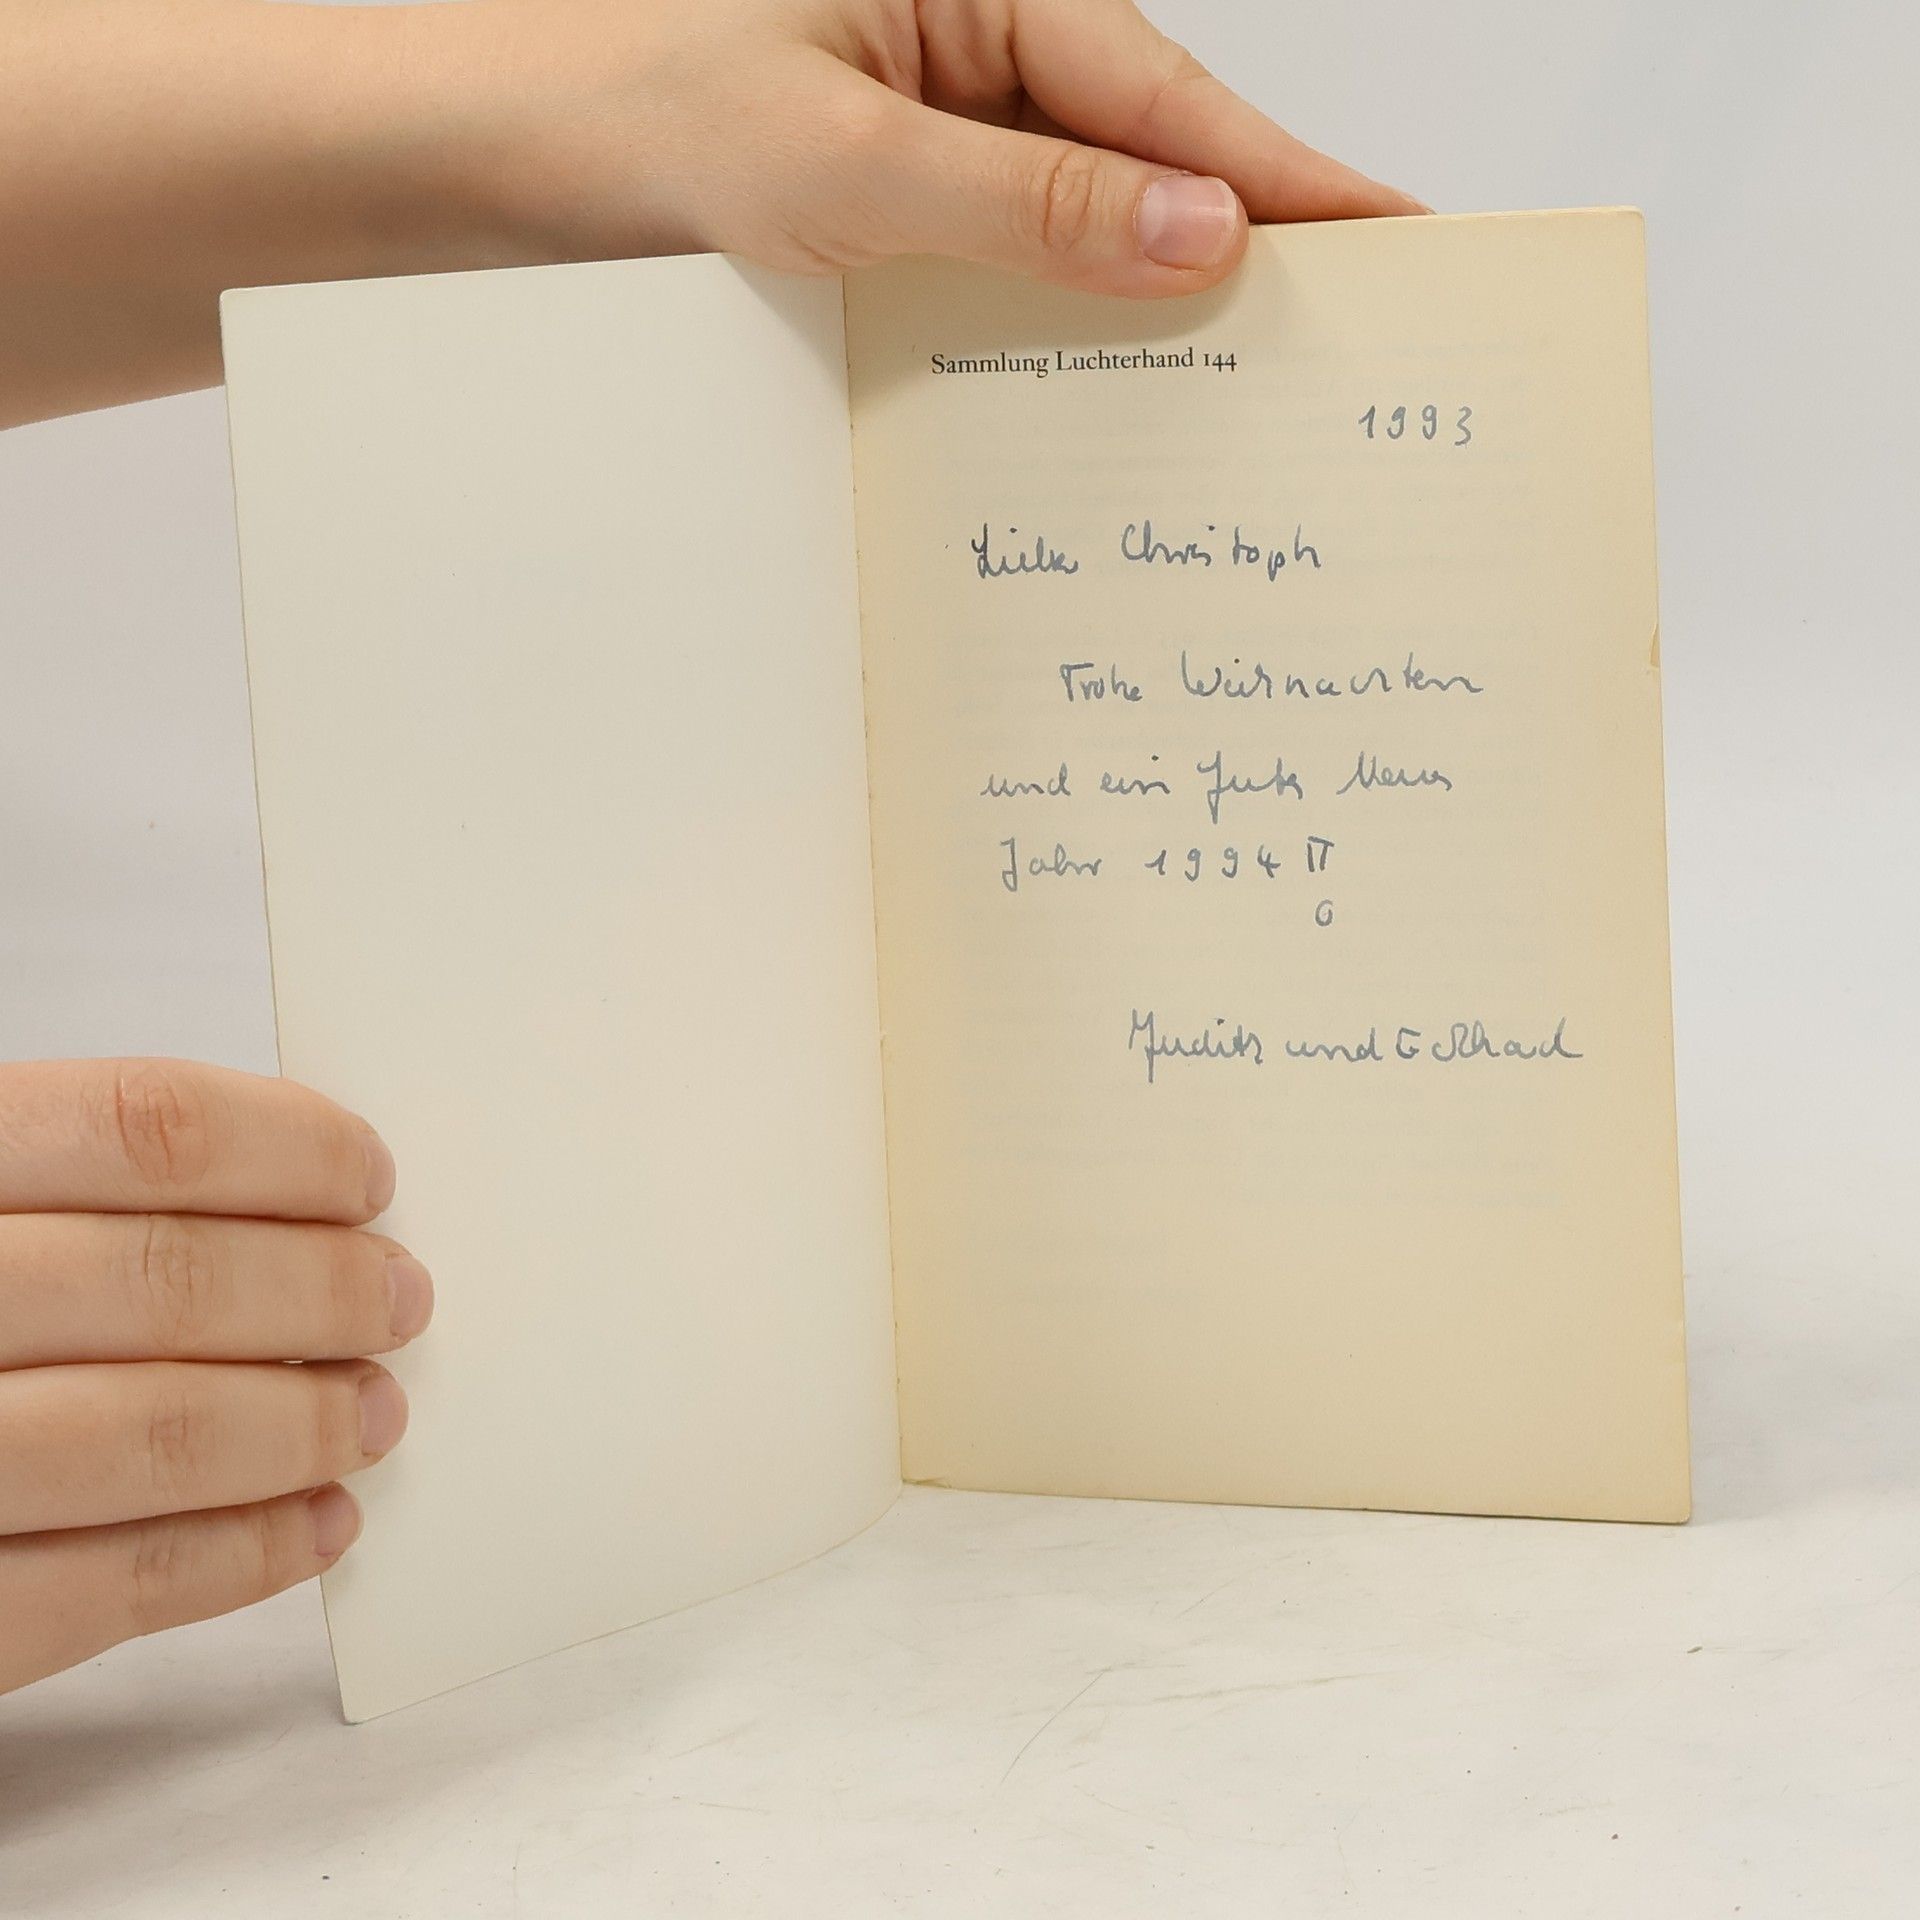 Sammlung Luchterhand 144
1993
Lieber Christoph
Frohe Weihnachten
und ein Gutes Neues
Jahr 1994 !!
Judith und Eckhad